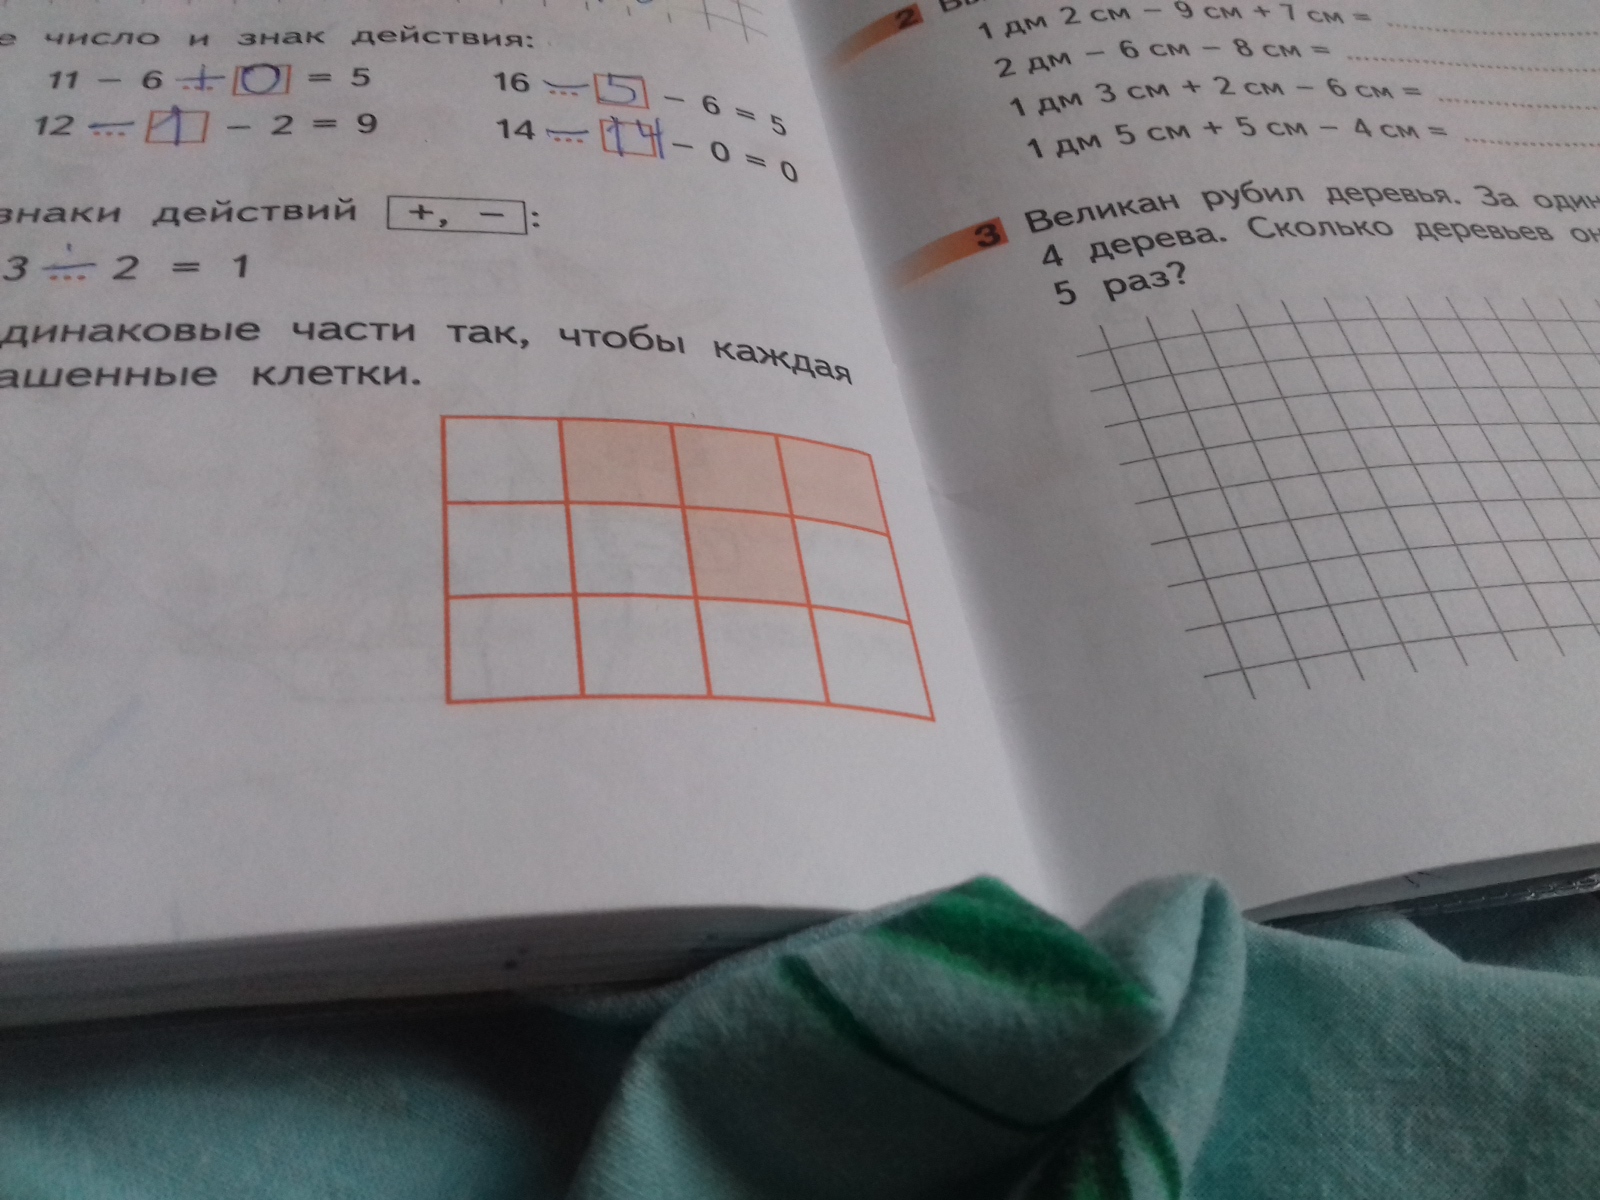 е число и знак действия:
11 − 6 + 0 = 5
16 − 5 − 6 = 5
12 − 1 − 2 = 9
14 − 14 − 0 = 0
знаки действий +, − :
3 − 2 = 1
динаковые части так, чтобы каждая
ашенные клетки.
2
1 дм 2 см − 9 см + 7 см =
2 дм − 6 см − 8 см =
1 дм 3 см + 2 см − 6 см =
1 дм 5 см + 5 см − 4 см =
3 Великан рубил деревья. За один
4 дерева. Сколько деревьев он
5 раз?